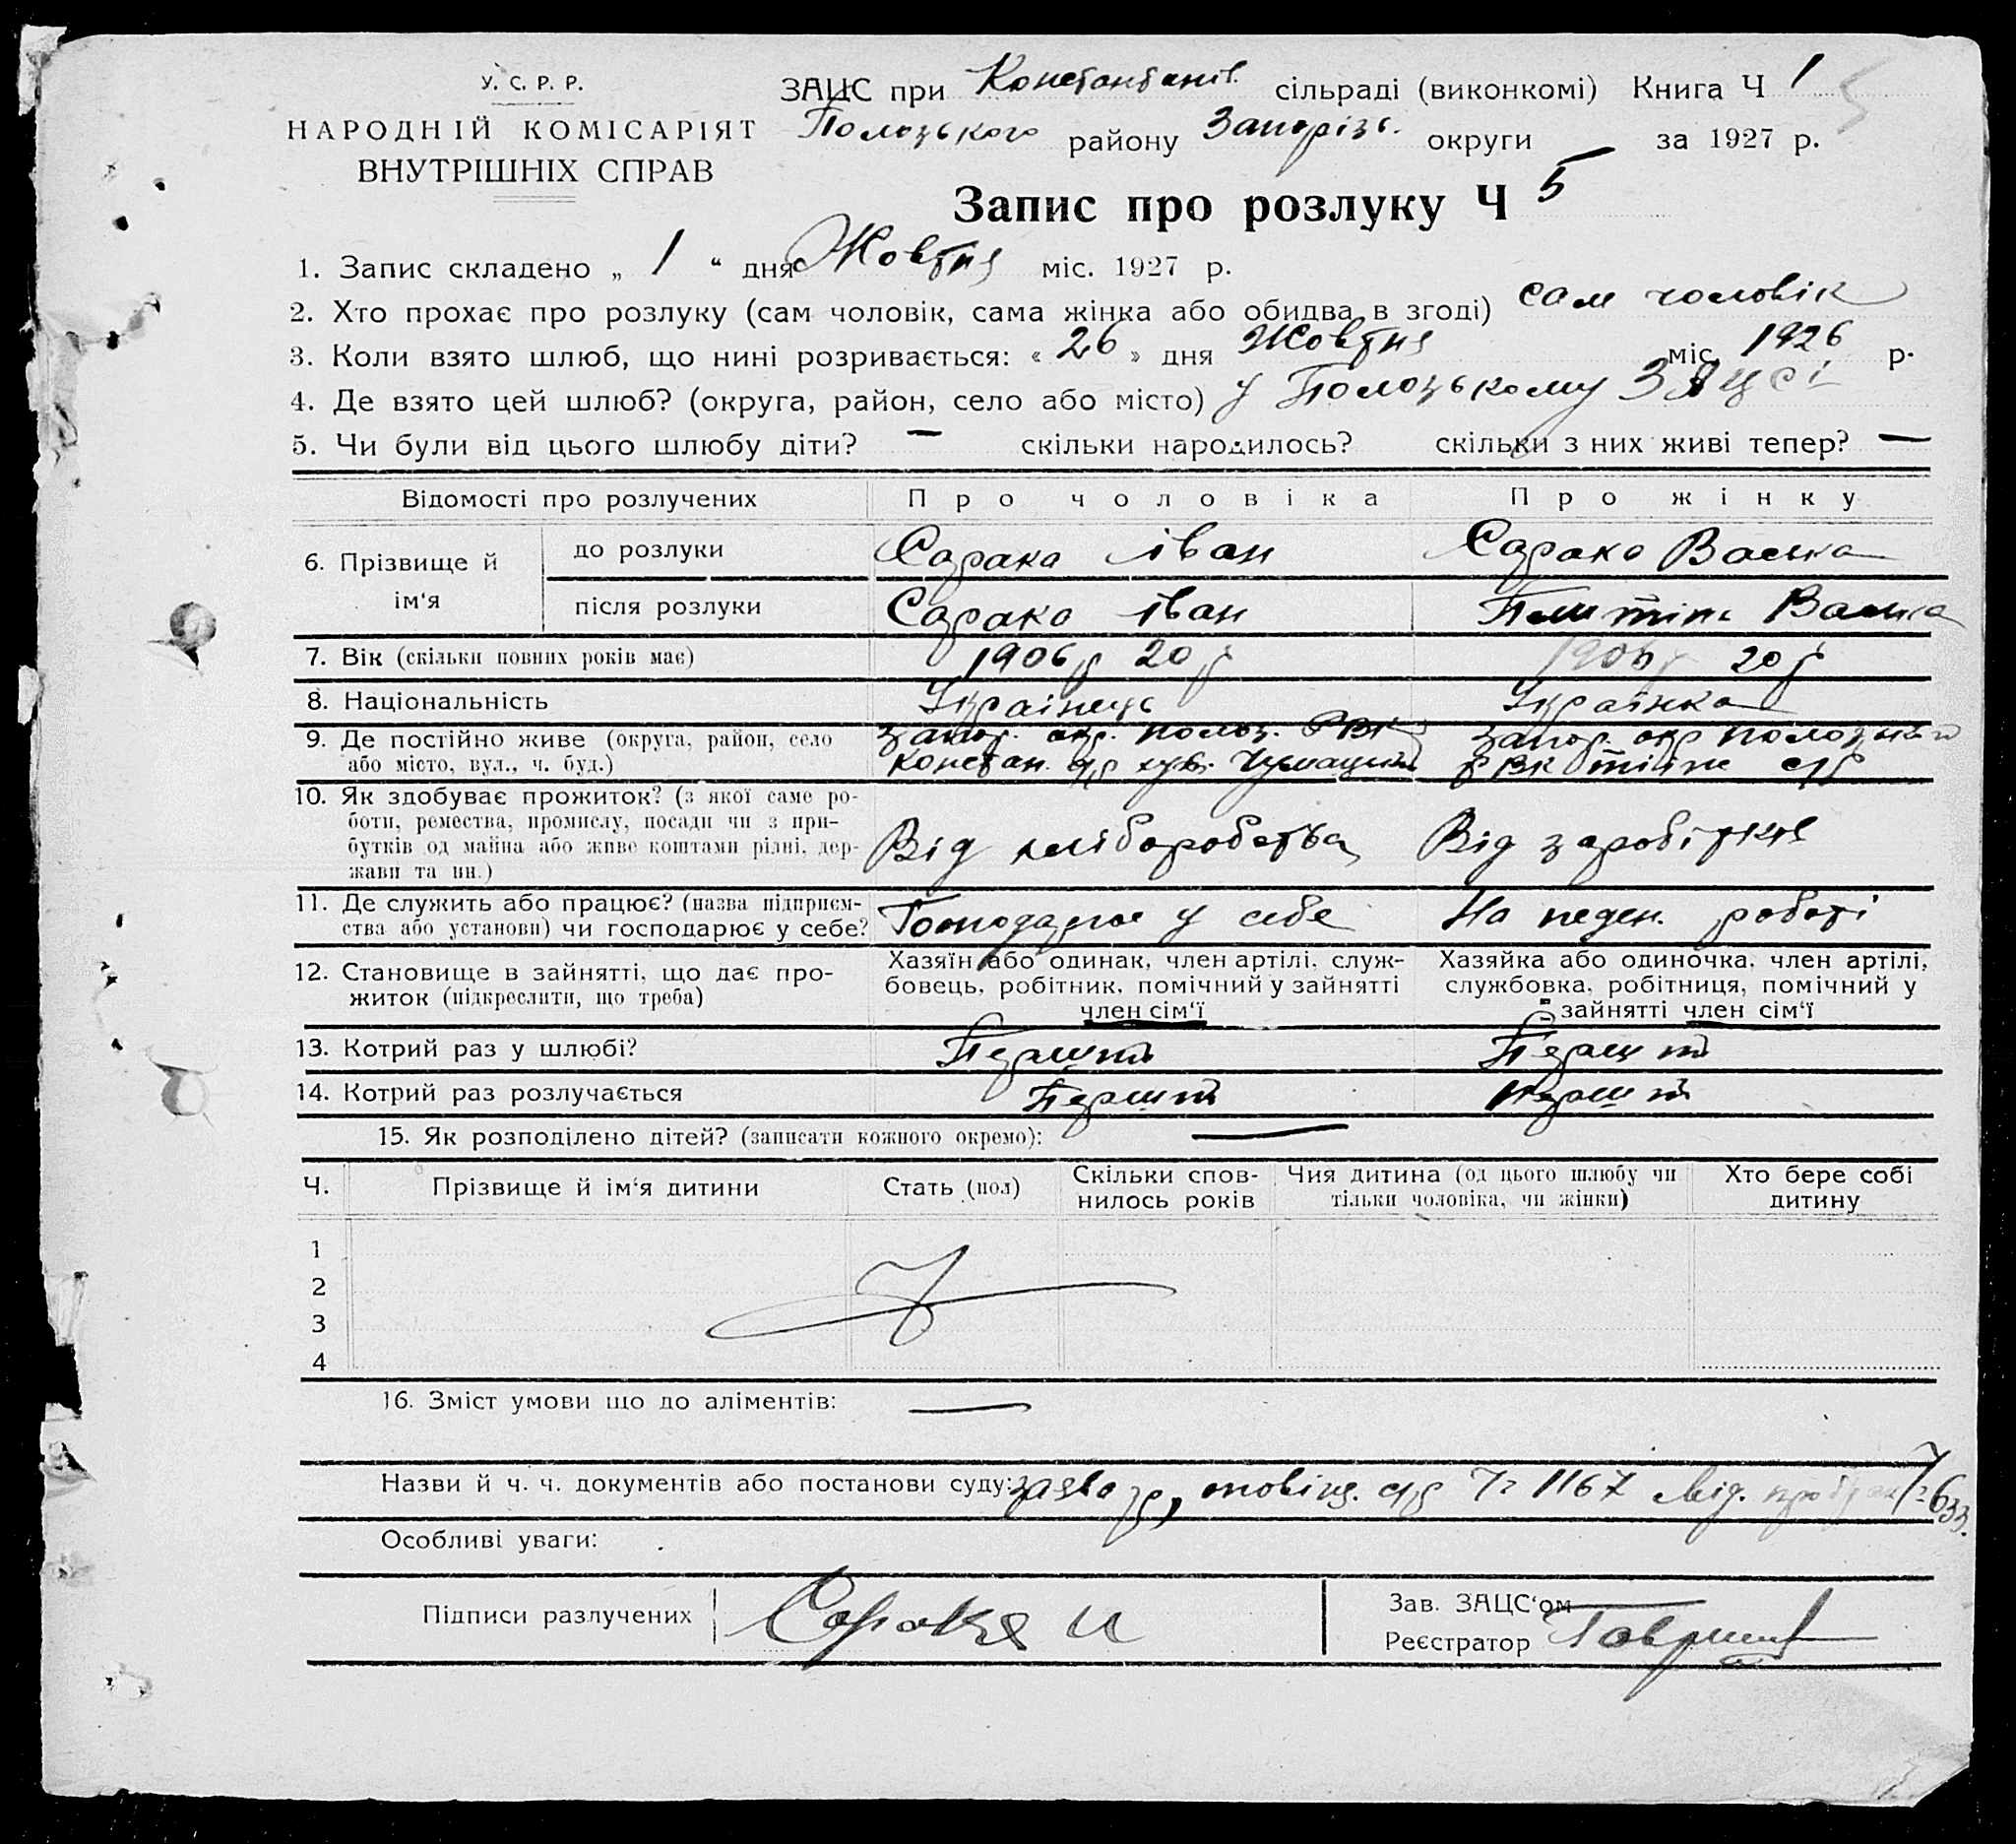 У. С. Р. Р.
НАРОДНІЙ КОМІСАРІЯТ
ВНУТРІШНІХ СПРАВ
ЗАЦС при Константанів. сільраді (виконкомі) Книга Ч 1
Пологського району Запоріз. округи за 1927 р.
Запис про розлуку Ч 5
1. Запис складено „ 1 “ дня Жовтня міс. 1927 р.
2. Хто прохає про розлуку (сам чоловік, сама жінка або обидва в згоді) сам чоловік
3. Коли взято шлюб, що нині розривається: « 26 » дня Жовтня міс. 1926 р.
4. Де взято цей шлюб? (округа, район, село або місто) у Пологському ЗАЦСі
5. Чи були від цього шлюбу діти? — скільки народилось? скільки з них живі тепер? —
Відомості про розлучених Про чоловіка Про жінку
6. Прізвище й ім‘я
до розлуки Сарака Іван Сарака
після розлуки Сарака Іван
7. Вік (скільки повних років має) 1906 р 20 р 1906 р 20 р
8. Національність Українець Українка
9. Де постійно живе (округа, район, село або місто, вул., ч. буд.)
запор. окр. полог. РВК
констан. с/р хут.
запор. окр
РВК с/р
10. Як здобуває прожиток? (з якої саме ро-
боти, ремества, промислу, посади чи з при-
бутків од майна або живе коштами рідні, дер-
жави та ин.)
Від хліборобства Від заробітків
11. Де служить або працює? (назва підприєм-
ства або установи) чи господарює у себе?
Господарює у себе На поден. роботі
12. Становище в зайнятті, що дає про-
житок (підкреслити, що треба)
Хазяїн або одинак, член артілі, служ-
бовець, робітник, помічний у зайнятті
член сім‘ї
Хазяйка або одиночка, член артілі,
службовка, робітниця, помічний у
зайнятті член сім‘ї
13. Котрий раз у шлюбі? Перший Перший
14. Котрий раз розлучається Перший Перший
15. Як розподілено дітей? (записати кожного окремо): —
Ч. Прізвище й ім‘я дитини Стать (пол) Скільки спов-
нилось років Чия дитина (од цього шлюбу чи
тільки чоловіка, чи жінки) Хто бере собі
дитину
1
2
3
4
16. Зміст умови що до аліментів: —
Назви й ч. ч. документів або постанови суду: заява гр, с/р № 1167 № 633.
Особливі уваги:
Підписи разлучених Сорока И
Зав. ЗАЦС‘ом
Реєстратор